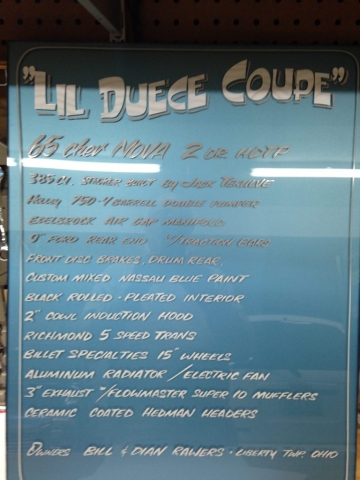 "LIL DUECE COUPE"
65 chev NOVA 2 DR HDTP
383 CI. STROKER BUILT By JACK
Holley 750-4 BARRELL DOUBLE PUMPER
EDELBROCK AIR GAP MANIFOLD
9" FORD REAR END W/TRACTION BARS
FRONT DISC BRAKES, DRUM REAR,
CUSTOM MIXED NASSAU BLUE PAINT
BLACK ROLLED - PLEATED INTERIOR
2" COWL INDUCTION HOOD
RICHMOND 5 SPEED TRANS
BILLET SPECIALTIES 15" WHEELS
ALUMINUM RADIATOR / ELECTRIC FAN
3" EXHAUST W/FLOWMASTER SUPER 10 MUFFLERS
CERAMIC COATED HEDMAN HEADERS
OWNERS BILL & DIAN RAWERS - LIBERTY TWP. OHIO